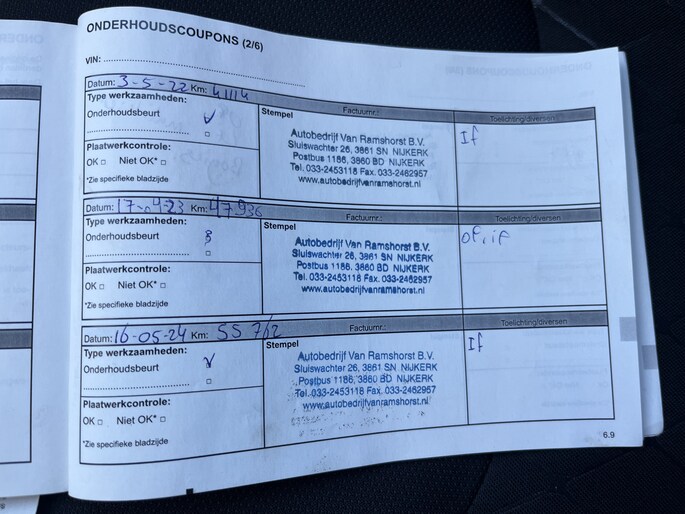 ONDERHOUDSCOUPONS (2/6)
VIN:
Datum: 3-5-22 Km: 41114
Factuurnr.:
Toelichting/diversen
Type werkzaamheden:
Onderhoudsbeurt
Plaatwerkcontrole:
OK Niet OK*
*Zie specifieke bladzijde
Stempel
Autobedrijf Van Ramshorst B.V.
Sluiswachter 26, 3861 SN NIJKERK
Postbus 1186, 3860 BD NIJKERK
Tel. 033-2453118 Fax. 033-2462957
www.autobedrijfvanramshorst.nl
If
Datum: 17-04-23 Km: 47936
Factuurnr.:
Toelichting/diversen
Type werkzaamheden:
Onderhoudsbeurt
Plaatwerkcontrole:
OK Niet OK*
*Zie specifieke bladzijde
Stempel
Autobedrijf Van Ramshorst B.V.
Sluiswachter 26, 3861 SN NIJKERK
Postbus 1186, 3860 BD NIJKERK
Tel. 033-2453118 Fax. 033-2462957
www.autobedrijfvanramshorst.nl
of, if
Datum: 16-05-24 Km: 55 762
Factuurnr.:
Toelichting/diversen
Type werkzaamheden:
Onderhoudsbeurt
Plaatwerkcontrole:
OK Niet OK*
*Zie specifieke bladzijde
Stempel
Autobedrijf Van Ramshorst B.V.
Sluiswachter 26, 3861 SN NIJKERK
Postbus 1186, 3860 BD NIJKERK
Tel. 033-2453118 Fax. 033-2462957
www.autobedrijfvanramshorst.nl
If
6.9